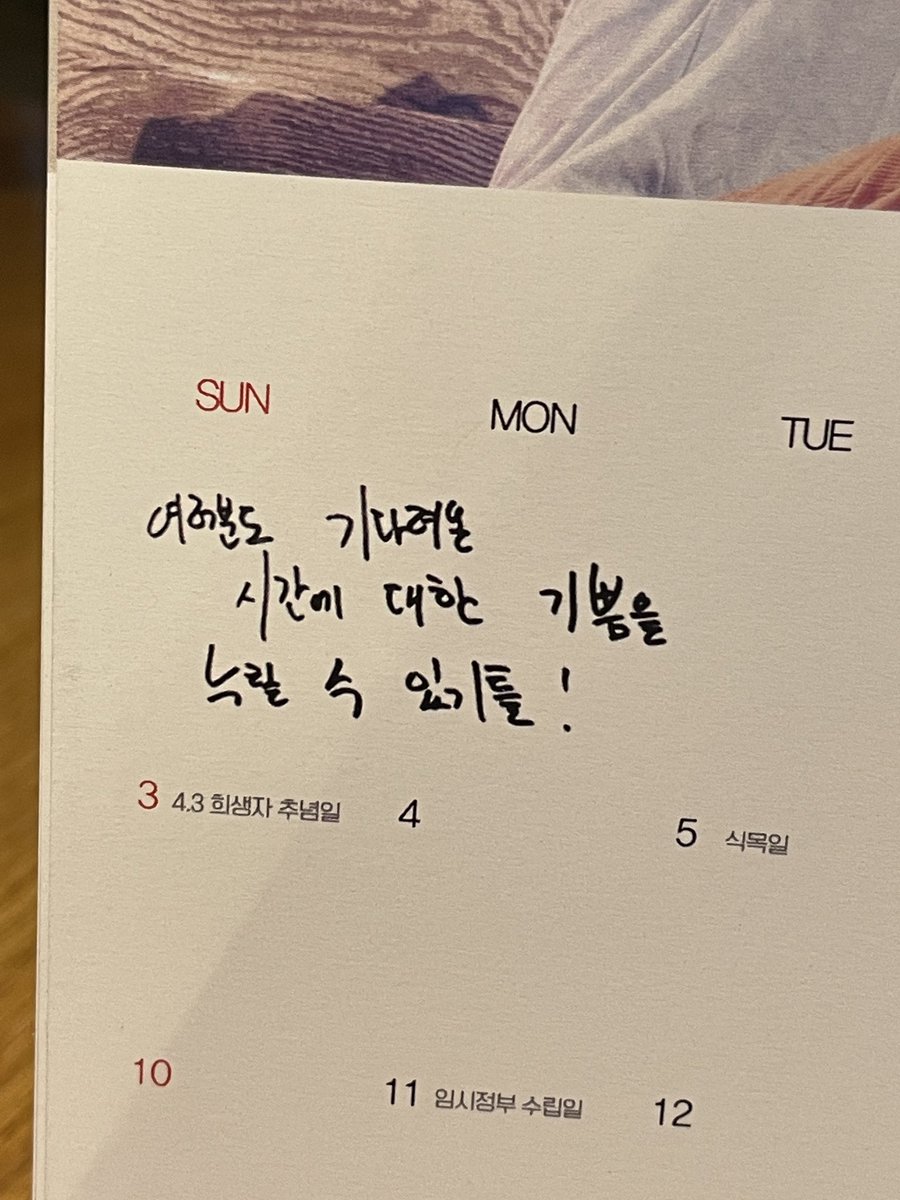 SUN MON TUE
여러분도 기다려온
시간에 대한 기쁨을
누릴 수 있기를!
3 4.3 희생자 추념일 4 5 식목일
10 11 임시정부 수립일 12